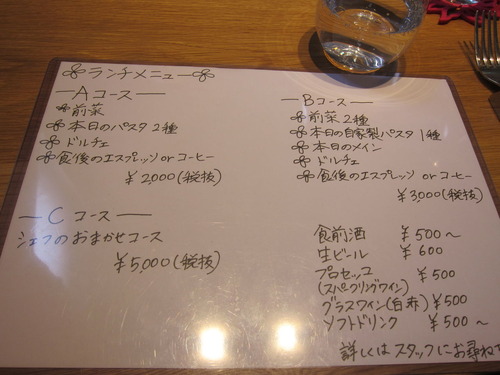 ランチメニュー
Aコース
前菜
本日のパスタ2種
ドルチェ
食後のエスプレッソorコーヒー
¥2,000(税抜)
Bコース
前菜2種
本日の自家製パスタ1種
本日のメイン
ドルチェ
食後のエスプレッソorコーヒー
¥3,000(税抜)
Cコース
シェフのおまかせコース
¥5,000(税抜)
食前酒 ¥500~
生ビール ¥600
プロセッコ ¥500
(スパークリングワイン)
グラスワイン(白赤)¥500
ソフトドリンク ¥500~
詳しくはスタッフにお尋ね